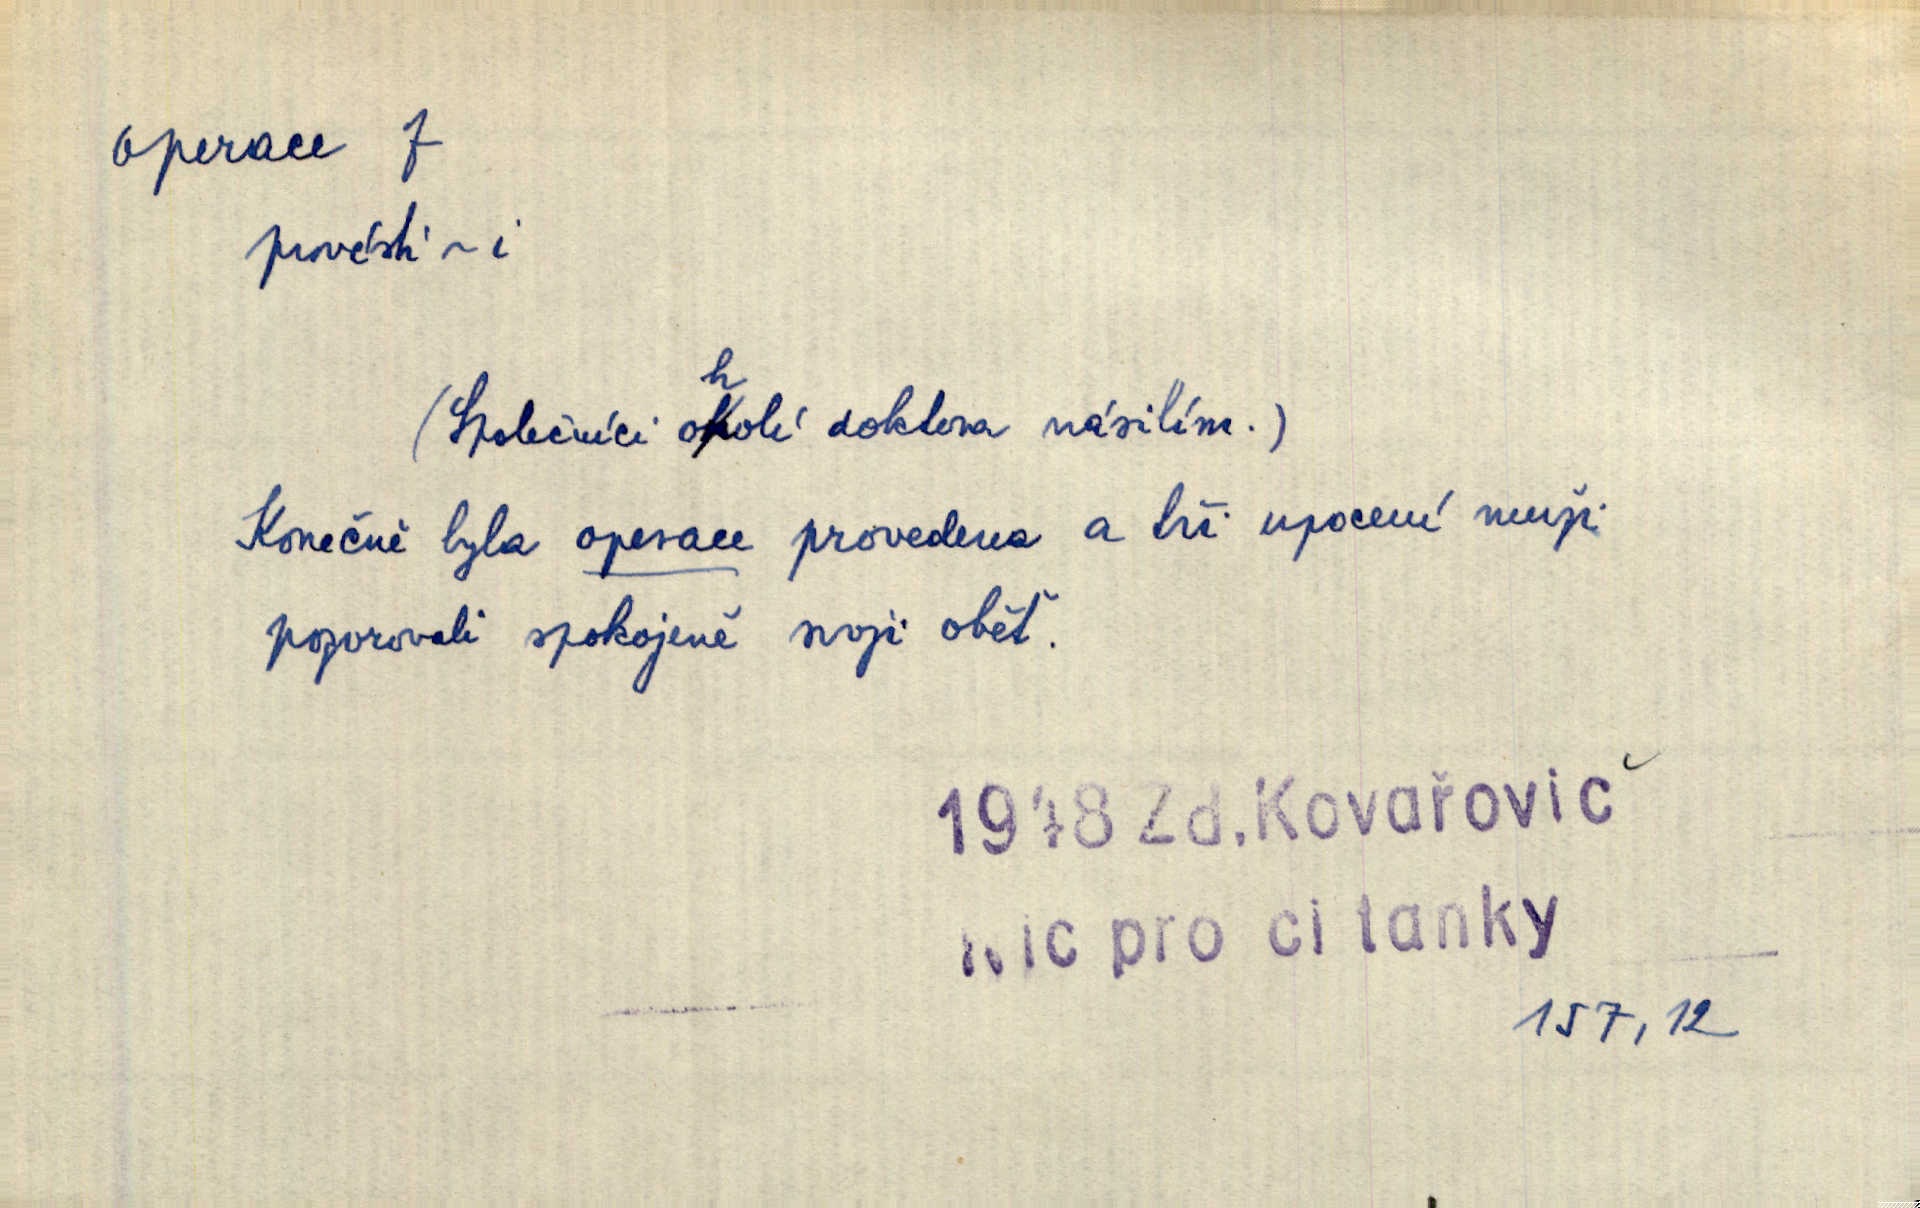 operace f
provésti ~ i
(Společníci oholí doktora násilím.)
Konečně byla operace provedena a tři upocení muži
pozorovali spokojeně svoji oběť.
1948 Zd. Kovařovič
Nic pro ci tanky
157, 12